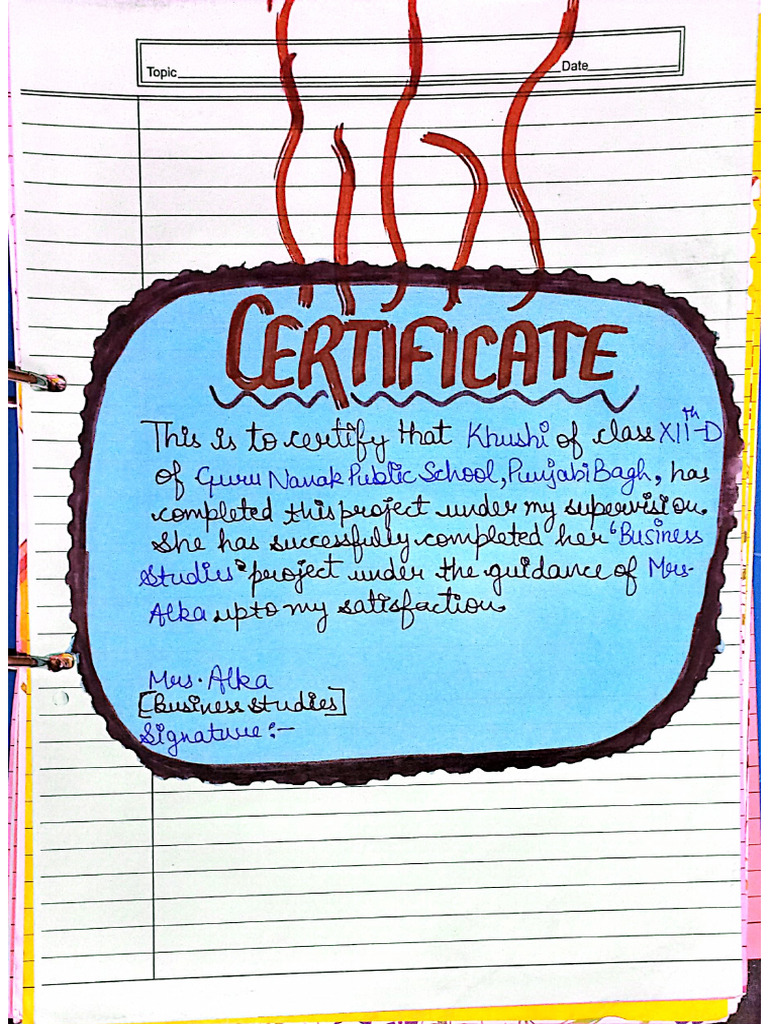 Topic Date
CERTIFICATE
This is to certify that Khushi of class XIIth-D
of Guru Nanak Public School, Punjabi Bagh, has
completed this project under my supervision.
She has successfully completed her "Business
Studies" project under the guidance of Mrs.
Alka upto my satisfaction.
Mrs. Alka
[Business studies]
Signature:-